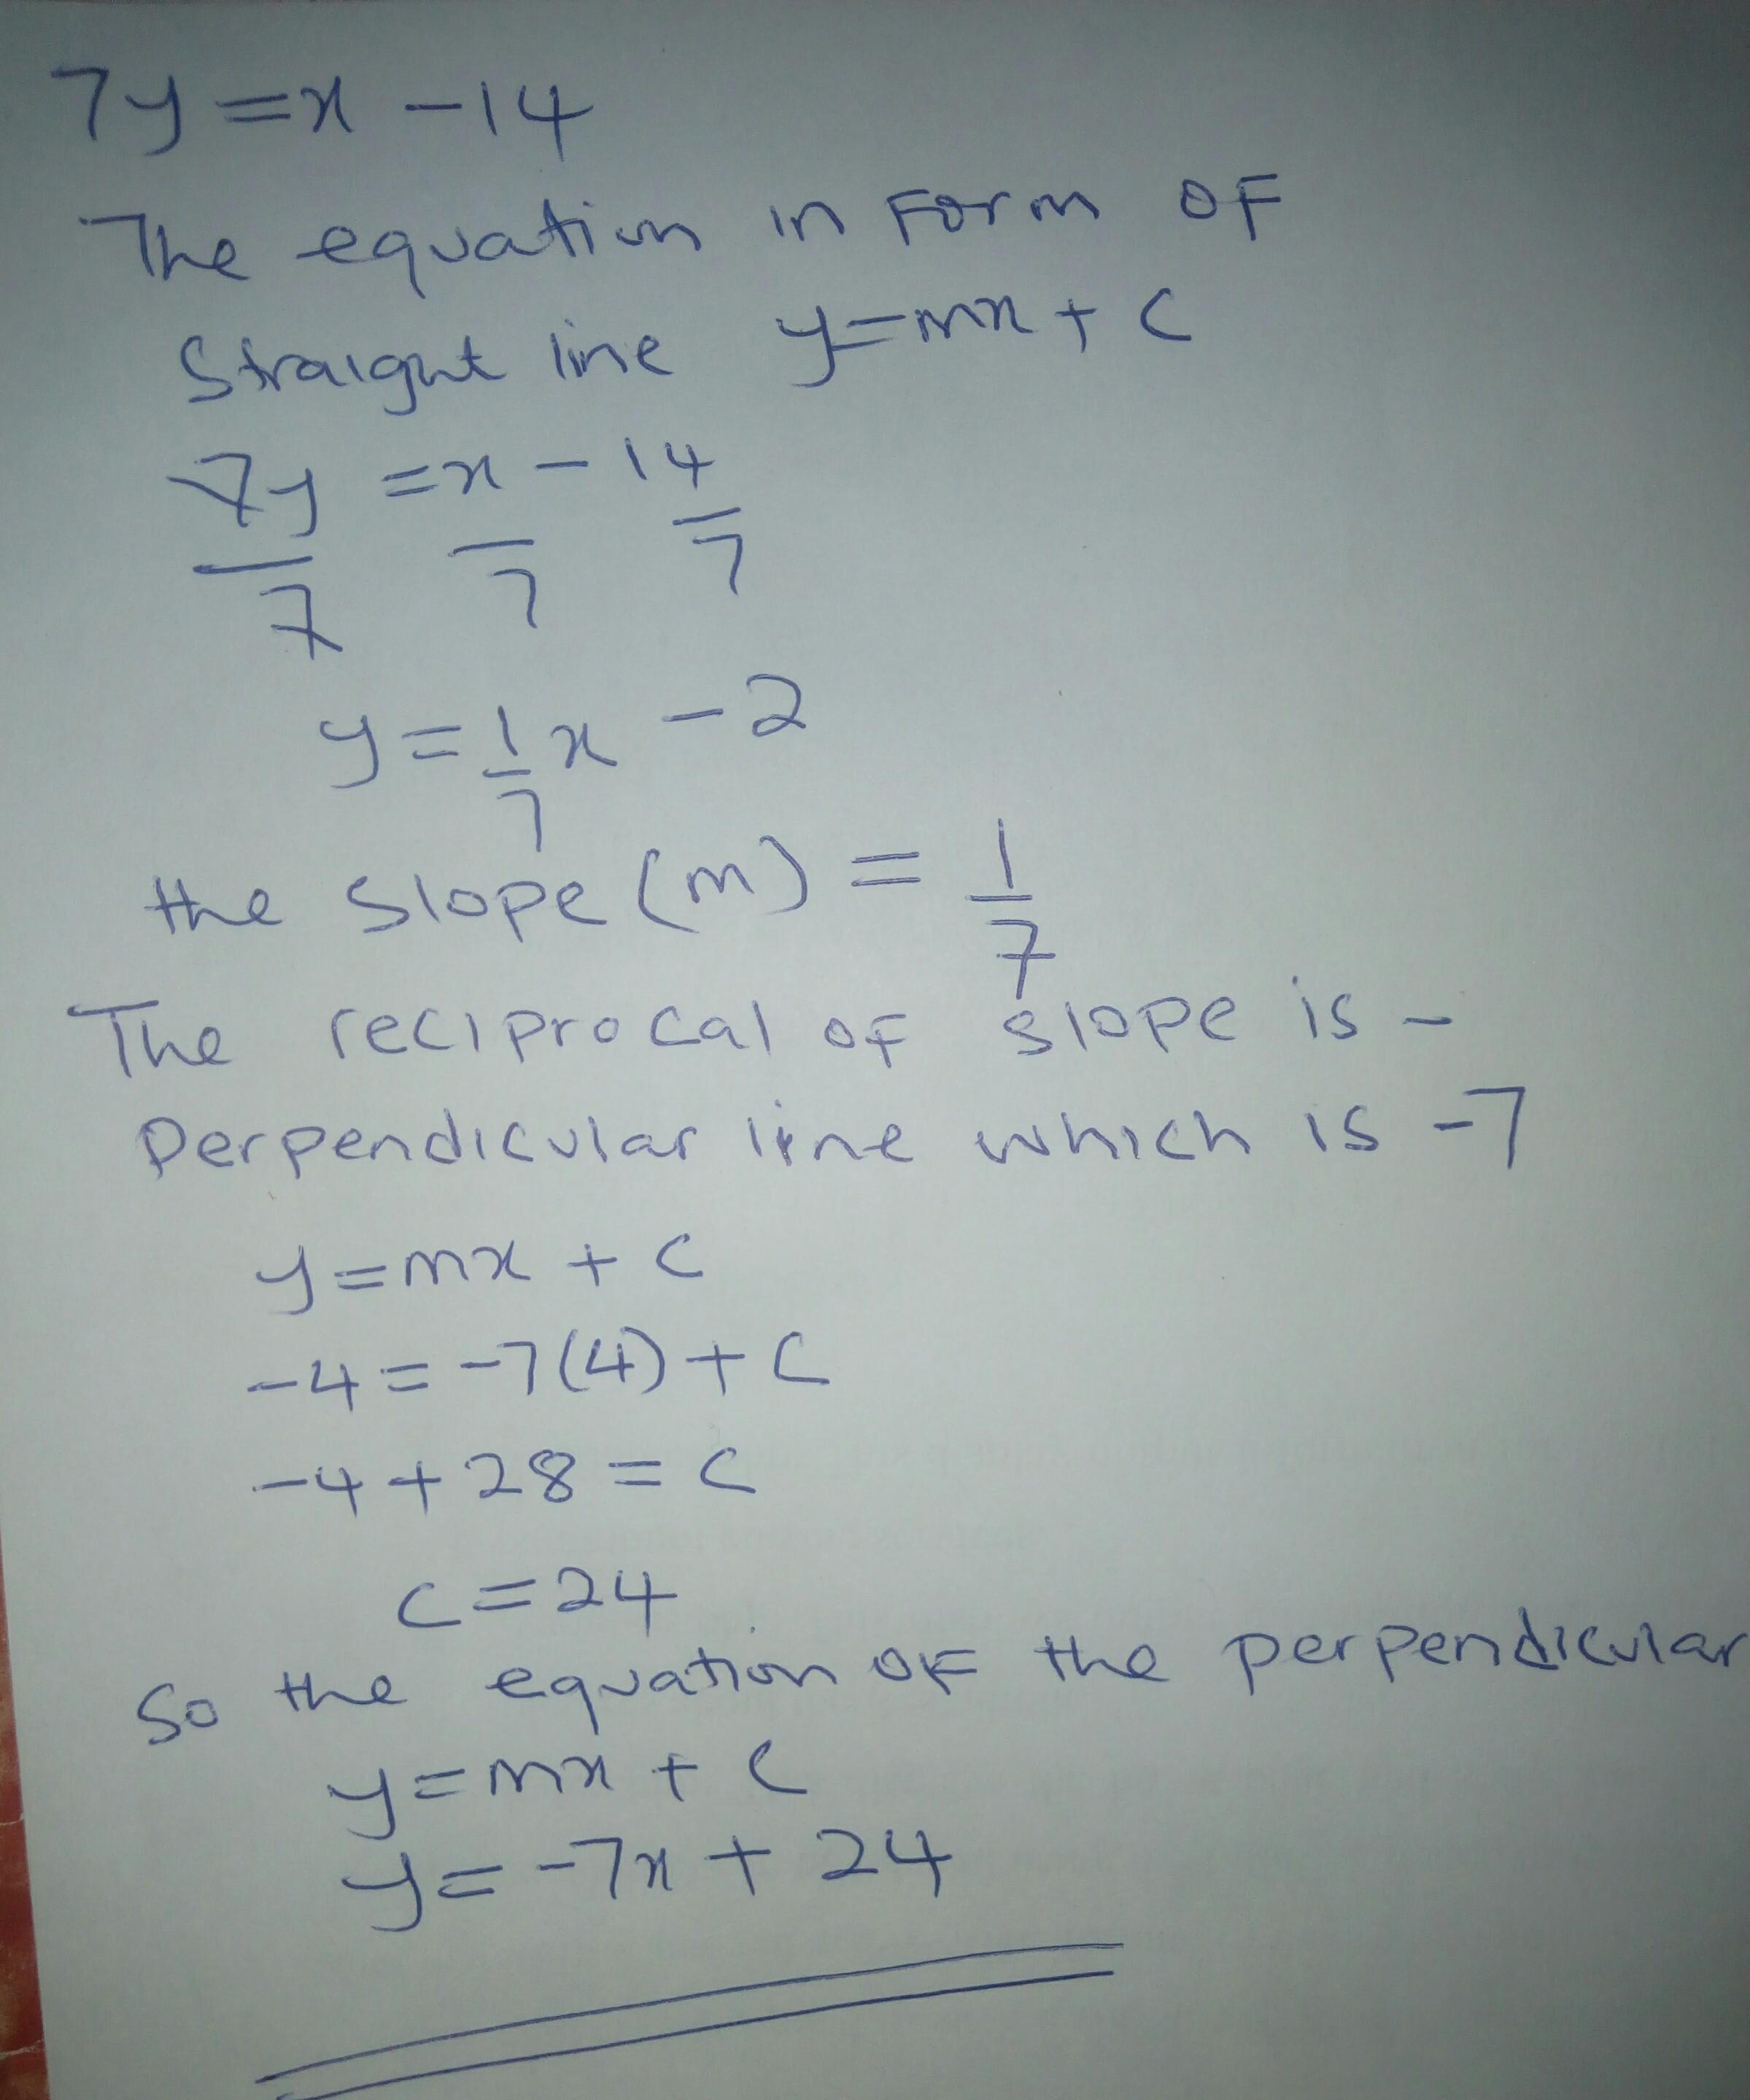 7y = x - 14
The equation in form of
straight line y = mx + c
7y = x - 14
7 7 7
y = 1/7 x - 2
the slope (m) = 1/7
The reciprocal of slope is -
perpendicular line which is -7
y = mx + c
-4 = -7(4) + c
-4 + 28 = c
c = 24
So the equation of the perpendicular
y = mx + c
y = -7x + 24